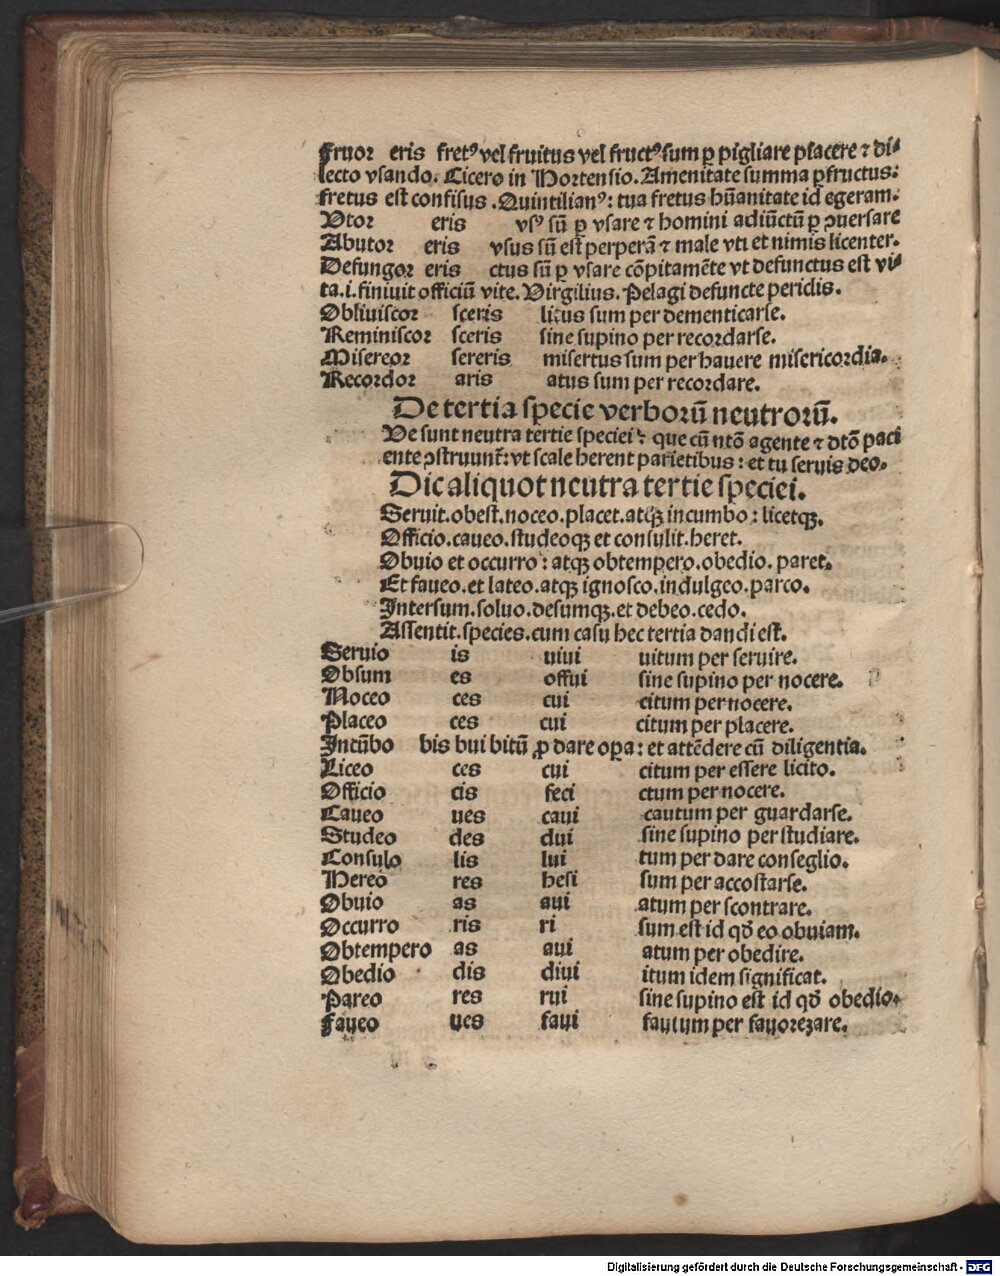 Fruor eris fretꝰ vel fruitus vel fructꝰ sum ꝑ pigliare placere ⁊ di⸗
lecto vsando. Cicero in Hortensio. Amenitate summa ꝑfructus:
fretus est confisus .Quintilianꝰ: tua fretus hūanitate id egeram.
Vtor eris vsꝰ sū ꝑ vsare ⁊ homini adiūctū ꝑ ↄuersare
Abutor eris vsus sū est perperā ⁊ male vti et nimis licenter.
Defungor eris ctus sū ꝑ vsare cōpitamēte vt defunctus est vi⸗
ta.i.finiuit officiū vite. Virgilius. Pelagi defuncte periclis.
Obliuiscor sceris litus sum per dementicarse.
Reminiscor sceris sine supino per recordarse.
Misereor sereris misertus sum per hauere misericordia.
Recordor aris atus sum per recordare.
De tertia specie verborū neutrorū.
Ve sunt neutra tertie speciei: que cū ntō agente ⁊ dtō paci
ente ↄstruunt: vt scale herent parietibus: et tu seruis deo.
Dic aliquot neutra tertie speciei.
Seruit.obest.noceo.placet.atqꝫ incumbo: licetqꝫ.
Officio.caueo.studeoqꝫ et consulit.heret.
Obuio et occurro: atqꝫ obtempero.obedio. paret.
Et faueo.et lateo.atqꝫ ignosco.indulgeo.parco.
Intersum.soluo.desumqꝫ.et debeo.cedo.
Assentit.species.cum casu hec tertia dandi est.
Seruio is uiui uitum per seruire.
Obsum es offui sine supino per nocere.
Noceo ces cui citum per nocere.
Placeo ces cui citum per placere.
Incūbo bis bui bitū ꝓ dare opa: et attēdere cū diligentia.
Liceo ces cui citum per essere licito.
Officio cis feci ctum per nocere.
Caueo ues caui cautum per guardarse.
Studeo des dui sine supino per studiare.
Consulo lis lui tum per dare conseglio.
Hereo res hesi sum per accostarse.
Obuio as aui atum per scontrare.
Occurro ris ri sum est id qđ eo obuiam.
Obtempero as aui atum per obedire.
Obedio dis diui itum idem significat.
Pareo res rui sine supino est id qđ obedio.
Faueo ues faui fautum per fauorezare.
Digitalisierung gefördert durch die Deutsche Forschungsgemeinschaft - DFG